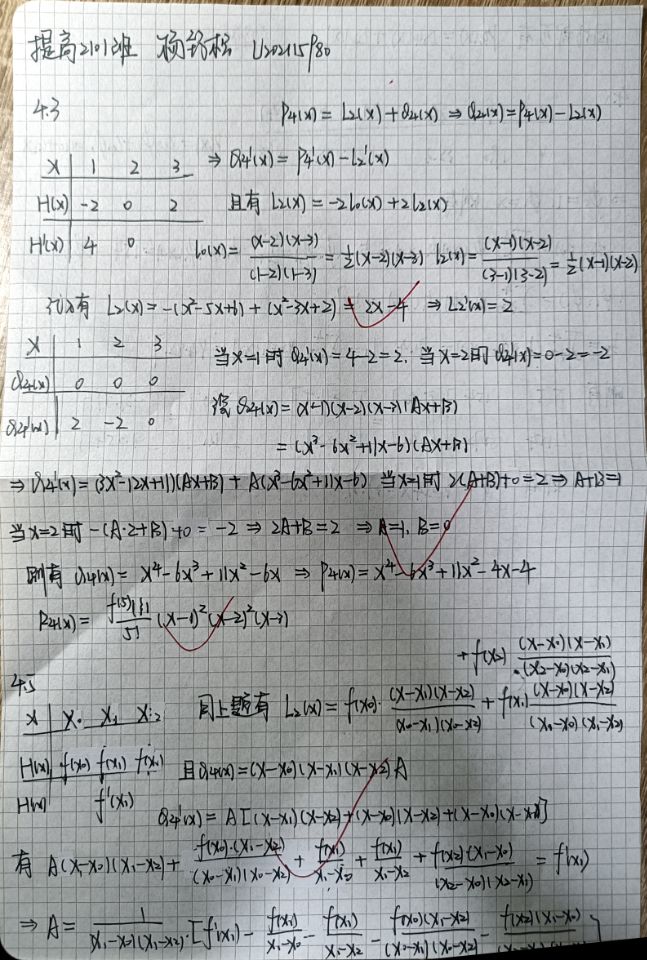 提高2101班 杨 松 U202115980
4.3
P4(x) = L2(x) + Q4(x) ⇒ Q4(x) = P4(x) - L2(x)
x | 1 2 3 ⇒ Q4'(x) = P4'(x) - L2'(x)
H(x) | -2 0 2 且有 L2(x) = -2l0(x) + 2l2(x)
H'(x) | 4 0 l0(x) = (x-2)(x-3)/(1-2)(1-3) = 1/2(x-2)(x-3) l2(x) = (x-1)(x-2)/(3-1)(3-2) = 1/2(x-1)(x-2)
所以有 L2(x) = -(x²-5x+6) + (x²-3x+2) = 2x-4 ⇒ L2'(x) = 2
x | 1 2 3 当x=1时 Q4'(x) = 4-2 = 2. 当x=2时 Q4'(x) = 0-2 = -2
Q4(x) | 0 0 0
Q4'(x) | 2 -2 0 设 Q4(x) = (x-1)(x-2)(x-3)(Ax+B)
= (x³-6x²+11x-6)(Ax+B)
⇒ Q4'(x) = (3x²-12x+11)(Ax+B) + A(x³-6x²+11x-6) 当x=1时 2(A+B)+0=2 ⇒ A+B=1
当x=2时 -(A·2+B)+0 = -2 ⇒ 2A+B=2 ⇒ A=1, B=0
则有 Q4(x) = x⁴-6x³+11x²-6x ⇒ P4(x) = x⁴-6x³+11x²-4x-4
R4(x) = f⁽⁵⁾(ξ)/5! (x-1)²(x-2)²(x-3)
4.5
x | x0 x1 x2 同上题有 L2(x) = f(x0)·(x-x1)(x-x2)/(x0-x1)(x0-x2) + f(x1)(x-x0)(x-x2)/(x1-x0)(x1-x2) + f(x2)(x-x0)(x-x1)/(x2-x0)(x2-x1)
H(x) | f(x0) f(x1) f(x2) 且Q4(x) = (x-x0)(x-x1)(x-x2)A
H'(x) f'(x1)
Q4'(x) = A[(x-x1)(x-x2)+(x-x0)(x-x2)+(x-x0)(x-x1)]
有 A(x1-x0)(x1-x2) + f(x0)·(x1-x2)/(x0-x1)(x0-x2) + f(x1)/x1-x0 + f(x1)/x1-x2 + f(x2)·(x1-x0)/(x2-x0)(x2-x1) = f'(x1)
⇒ A = 1/(x1-x0)(x1-x2)·[f'(x1) - f(x1)/x1-x0 - f(x1)/x1-x2 - f(x0)(x1-x2)/(x0-x1)(x0-x2) - f(x2)(x1-x0)/(x2-x0)(x2-x1)]